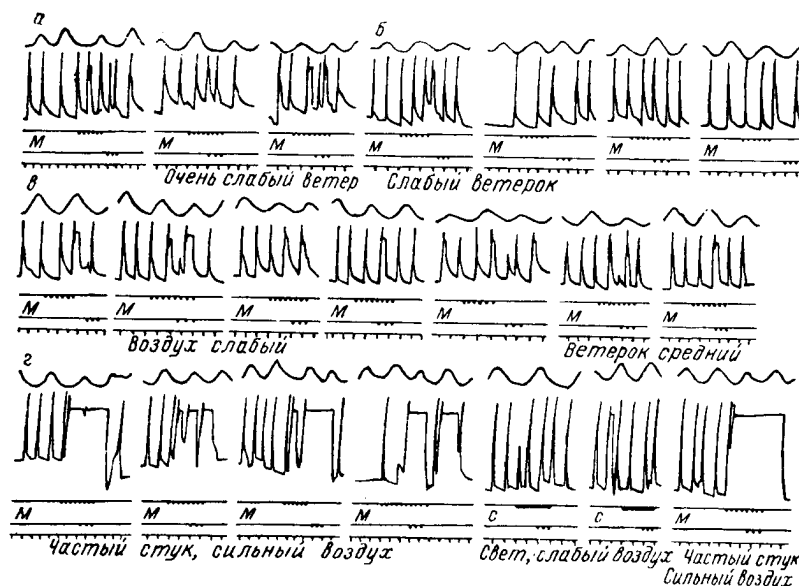 а б
М М М М М М М
Очень слабый ветер Слабый ветерок
в
М М М М М М М
Воздух слабый Ветерок средний
г
М М М М С С М
Частый стук, сильный воздух Свет, слабый воздух Частый стук
Сильный воздух